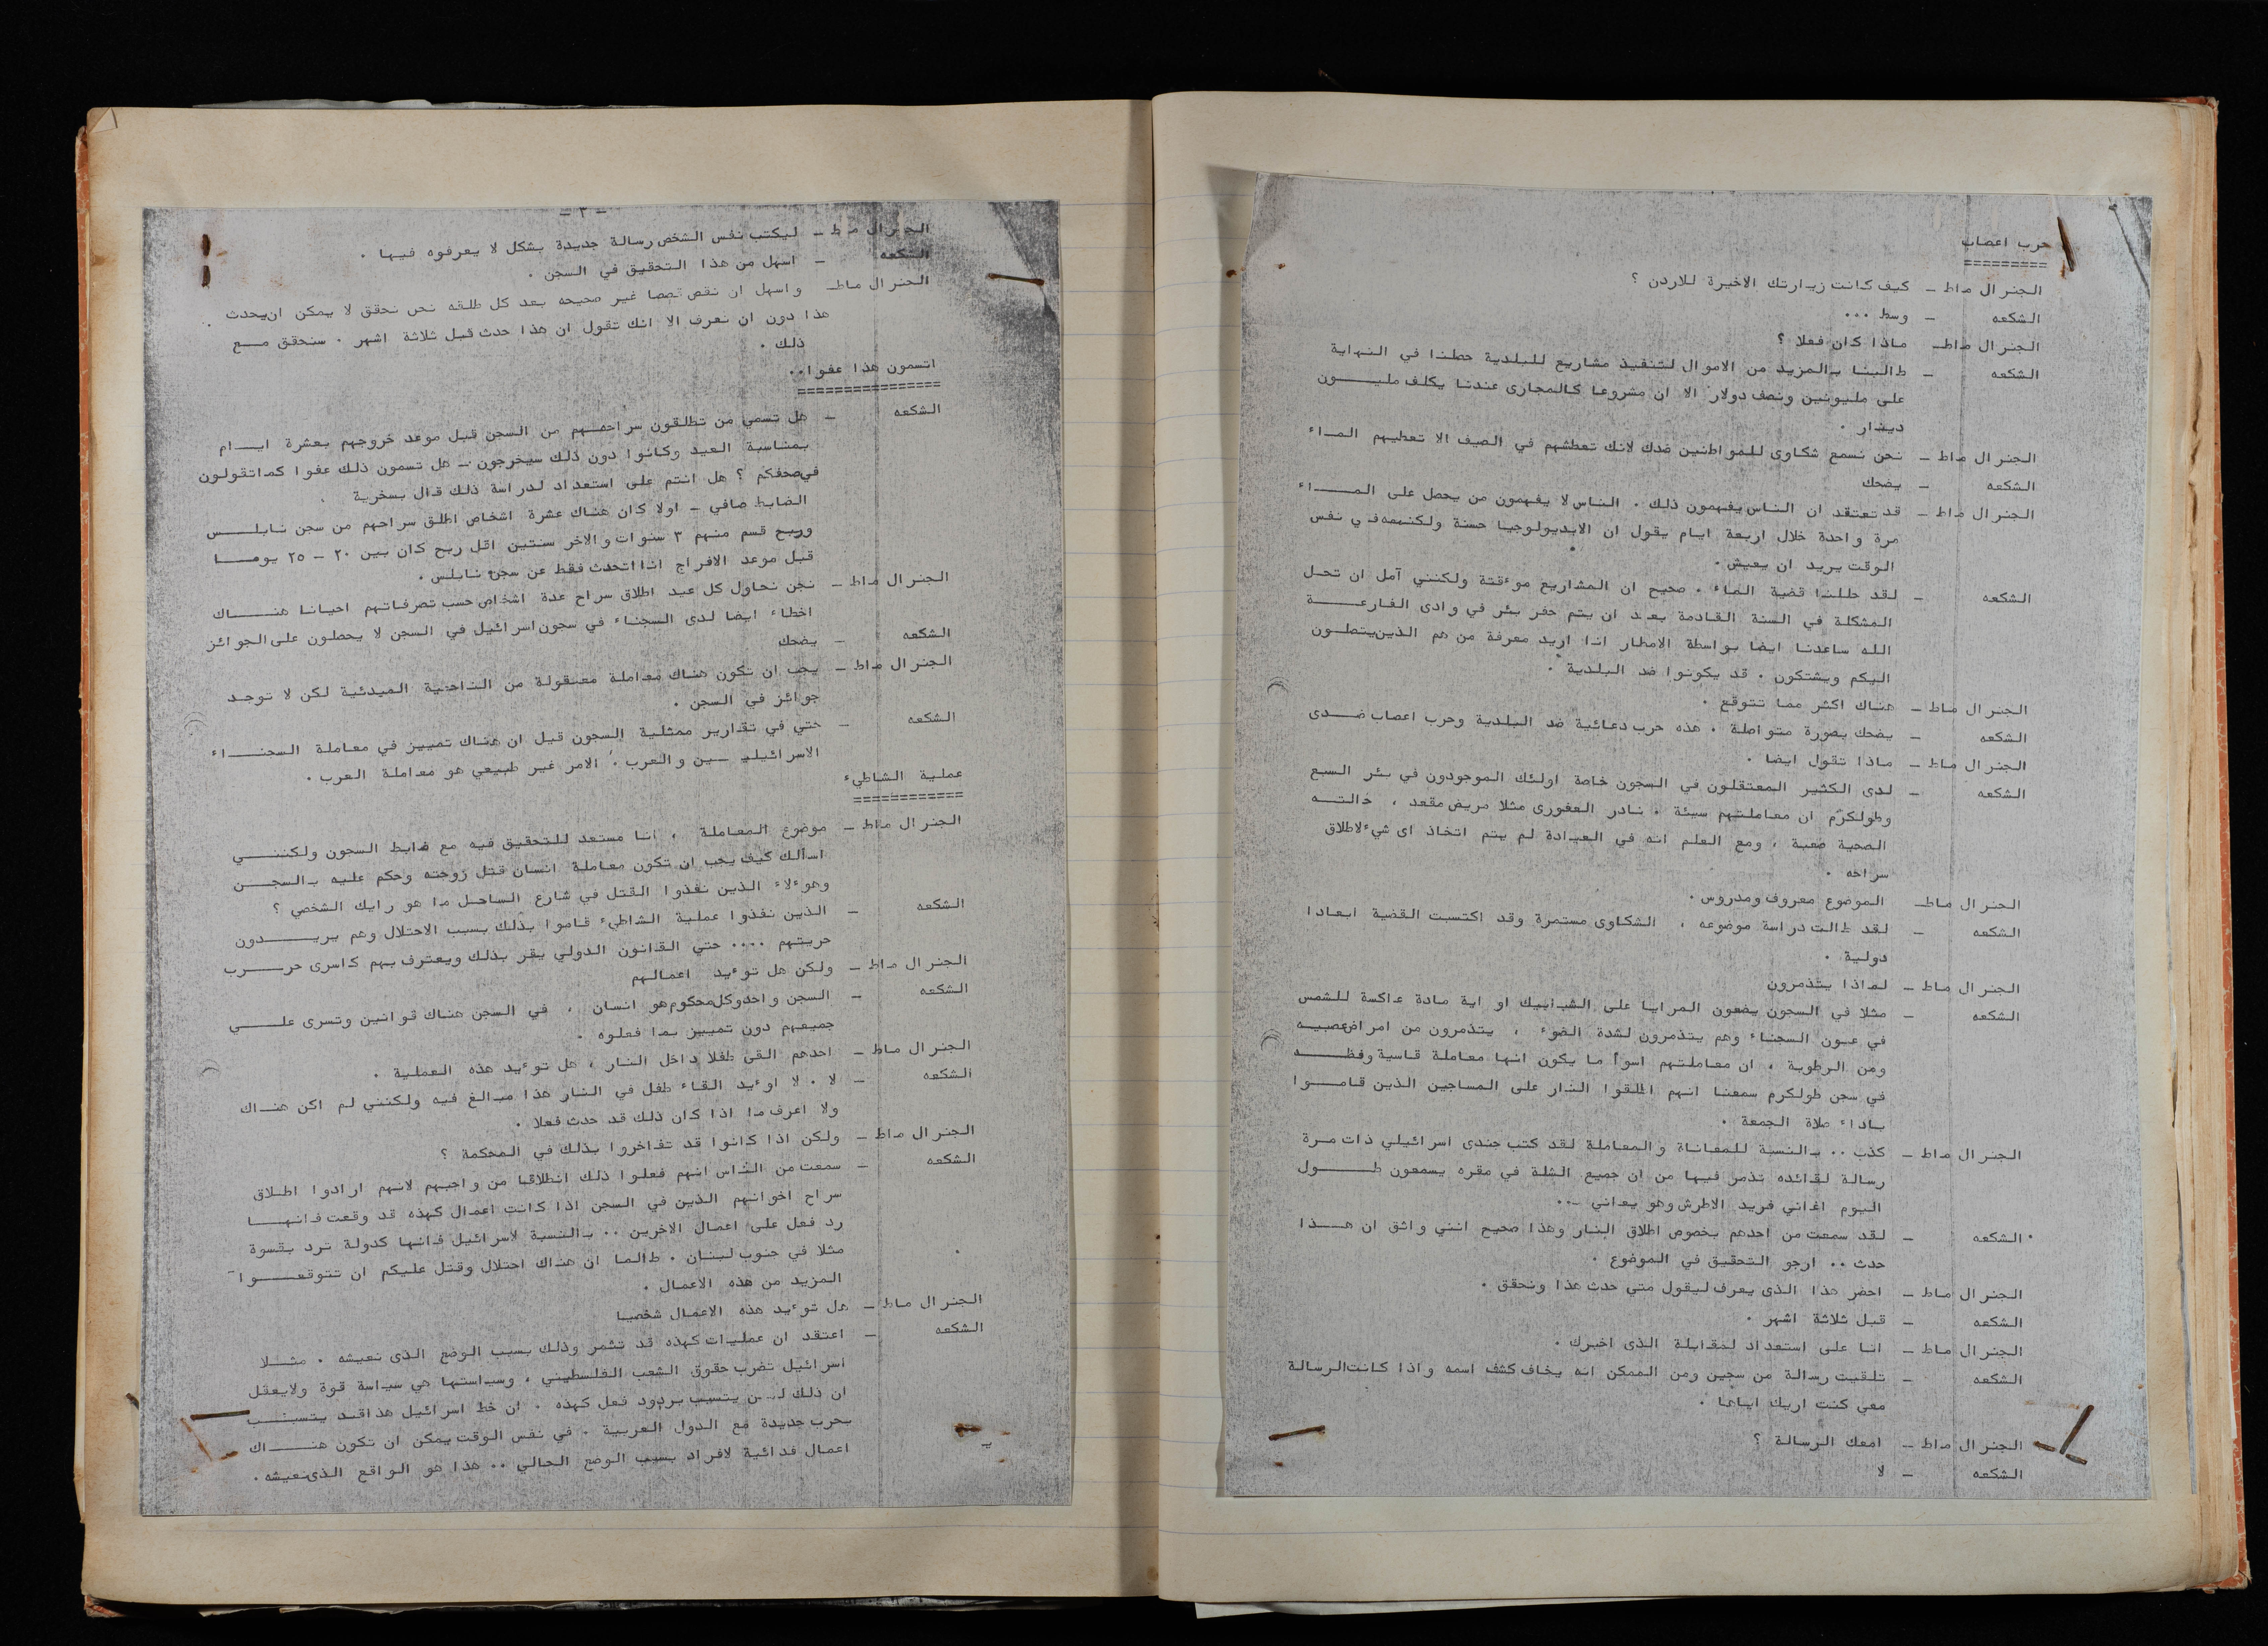 حرب اعصاب
=========
الجنرال ماط – كيف كانت زيارتك الاخيرة للاردن ؟
الشكعه – وسط ...
الجنرال ماط – ماذا كان فعلا ؟
الشكعه – طالبنا بالمزيد من الاموال لتنفيذ مشاريع للبلدية حصلنا في النهاية
على مليونين ونصف دولار الا ان مشروعا كالمجارى عندنا يكلف مليـــون
دينار .
الجنرال ماط – نحن نسمع شكاوى للمواطنين ضدك لانك تعطشهم في الصيف الا تعطيهم الماء
الشكعه – يضحك
الجنرال ماط – قد تعتقد ان الناس يفهمون ذلك . الناس لا يفهمون من يحصل على المـــاء
مرة واحدة خلال اربعة ايام يقول ان الايديولوجيا حسنة ولكنه في نفس
الوقت يريد ان يعيش .
الشكعه – لقد حللنا قضية الماء . صحيح ان المشاريع موءقتة ولكنني آمل ان تحل
المشكلة في السنة القادمة بعد ان يتم حفر بئر في وادى الفارعـــة
الله ساعدنا ايضا بواسطة الامطار انا اريد معرفة من هم الذين يتصلون
اليكم ويشتكون . قد يكونوا ضد البلدية .
الجنرال ماط – هناك اكثر مما تتوقع .
الشكعه – يضحك بصورة متواصلة . هذه حرب دعائية ضد البلدية وحرب اعصاب ضـدى
الجنرال ماط – ماذا تقول ايضا .
الشكعه – لدى الكثير المعتقلون في السجون خاصة اولئك الموجودون في بئر السبع
وطولكرم ان معاملتهم سيئة . نادر العفورى مثلا مريض مقعد ، حالتــه
الصحية صعبة ، ومع العلم انه في العيادة لم يتم اتخاذ اى شيء لاطلاق
سراحه .
الجنرال ماط – الموضوع معروف ومدروس .
الشكعه – لقد طالت دراسة موضوعه ، الشكاوى مستمرة وقد اكتسبت القضية ابعادا
دولية .
الجنرال ماط – لماذا يتذمرون
الشكعه – مثلا في السجون يضعون المرايا على الشبابيك او اية مادة عاكسة للشمس
في عيون السجناء وهم يتذمرون لشدة الضوء ، يتذمرون من امراض عصبيه
ومن الرطوبة ، ان معاملتهم اسوأ ما يكون انها معاملة قاسية وفظـــه
في سجن طولكرم سمعنا انهم اطلقوا النار على المساجين الذين قامـــوا
باداء صلاة الجمعة .
الجنرال ماط – كذب .. بالنسبة للمعاناة والمعاملة لقد كتب جندى اسرائيلي ذات مرة
رسالة لقائده تذمر فيها من ان جميع الشلة في مقره يسمعون طـــول
اليوم اغاني فريد الاطرش وهو يعاني ...
الشكعه – لقد سمعت من احدهم بخصوص اطلاق النار وهذا صحيح انني واثق ان هـــذا
حدث .. ارجو التحقيق في الموضوع .
الجنرال ماط – احضر هذا الذى يعرف ليقول متي حدث هذا ونحقق .
الشكعه – قبل ثلاثة اشهر .
الجنرال ماط – انا على استعداد لمقابلة الذى اخبرك .
الشكعه – تلقيت رسالة من سجين ومن الممكن انه يخاف كشف اسمه واذا كانت الرسالة
معي كنت اريك اياها .
الجنرال ماط – امعك الرسالة ؟
الشكعه – لا
الجنرال ماط – ليكتب نفس الشخص رسالة جديدة بشكل لا يعرفوه فيها .
الشكعه – اسهل من هذا التحقيق في السجن .
الجنرال ماط – واسهل ان نقص قصصا غير صحيحه بعد كل طلقه نحن نحقق لا يمكن ان يحدث
هذا دون ان نعرف الا انك تقول ان هذا حدث قبل ثلاثة اشهر . سنحقق مــع
ذلك .
اتسمون هذا عفوا..
================
الشكعه – هل تسمي من تطلقون سراحهـم من السجن قبل موعد خروجهم بعشرة ايــام
بمناسبة العيد وكانوا دون ذلك سيخرجون – هل تسمون ذلك عفوا كما تقولون
في صحفكم ؟ هل انتم على استعداد لدراسة ذلك قال بسخرية
الضابط صافي – اولا كان هناك عشرة اشخاص اطلق سراحهم من سجن نابلــس
وربح قسم منهم ٣ سنوات والاخر سنتين اقل ربح كان بين ٢٠ – ٢٥ يومــا
قبل موعد الافراج انا اتحدث فقط عن سجن نابلس .
الجنرال ماط – نحن نحاول كل عيد اطلاق سراح عدة اشخاص حسب تصرفاتهم احيانا هنــاك
اخطاء ايضا لدى السجناء في سجون اسرائيل في السجن لا يحصلون على الجوائز
الشكعه – يضحك
الجنرال ماط – يجب ان تكون هناك معاملة معقولة من الناحية المبدئية لكن لا توجد
جوائز في السجن .
الشكعه – حتي في تقارير ممثلية السجون قيل ان هناك تمييز في معاملة السجنــاء
الاسرائيليــين والعرب . الامر غير طبيعي هو معاملة العرب .
عملية الشاطيء
============
الجنرال ماط – موضوع المعاملة ، انا مستعد للتحقيق فيه مع ضابط السجون ولكننـــي
اسألك كيف يجب ان تكون معاملة انسان قتل زوجته وحكم عليه بالسجــن
وهوءلاء الذين نفذوا القتل في شارع الساحل ما هو رايك الشخصي ؟
الشكعه – الذين نفذوا عملية الشاطيء قاموا بذلك بسبب الاحتلال وهم يريـــدون
حريتهم .... حتي القانون الدولي يقر بذلك ويعترف بهم كاسرى حـــرب
الجنرال ماط – ولكن هل توءيد اعمالهم
الشكعه – السجن واحد وكل محكوم هو انسان ، في السجن هناك قوانين وتسرى علـــي
جميعهم دون تمييز بما فعلوه .
الجنرال ماط – احدهم القى طفلا داخل النار ، هل توءيد هذه العملية .
الشكعه – لا . لا اوءيد القاء طفل في النار هذا مبالغ فيه ولكنني لم اكن هنــاك
ولا اعرف ما اذا كان ذلك قد حدث فعلا .
الجنرال ماط – ولكن اذا كانوا قد تفاخروا بذلك في المحكمة ؟
الشكعه – سمعت من الناس انهم فعلوا ذلك انطلاقا من واجبهم لانهم ارادوا اطلاق
سراح اخوانهم الذين في السجن اذا كانت اعمال كهذه قد وقعت فانهــا
رد فعل على اعمال الاخرين .. بالنسبة لاسرائيل فانها كدولة ترد بقسوة
مثلا في جنوب لبنان . طالما ان هناك احتلال وقتل عليكم ان تتوقعـــوا
المزيد من هذه الاعمال .
الجنرال ماط – هل توءيد هذه الاعمال شخصيا
الشكعه – اعتقد ان عمليات كهذه قد تثمر وذلك بسبب الوضع الذى نعيشه . مثــلا
اسرائيل تضرب حقوق الشعب الفلسطيني ، وسياستها هي سياسة قوة ولا يعقل
ان ذلك لــن يتسبب بردود فعل كهذه . ان خط اسرائيل هذا قد يتسبــب
بحرب جديدة مع الدول العربية . في نفس الوقت يمكن ان تكون هنـــاك
اعمال فدائية لافراد بسبب الوضع الحالي .. هذا هو الواقع الذى نعيشه .